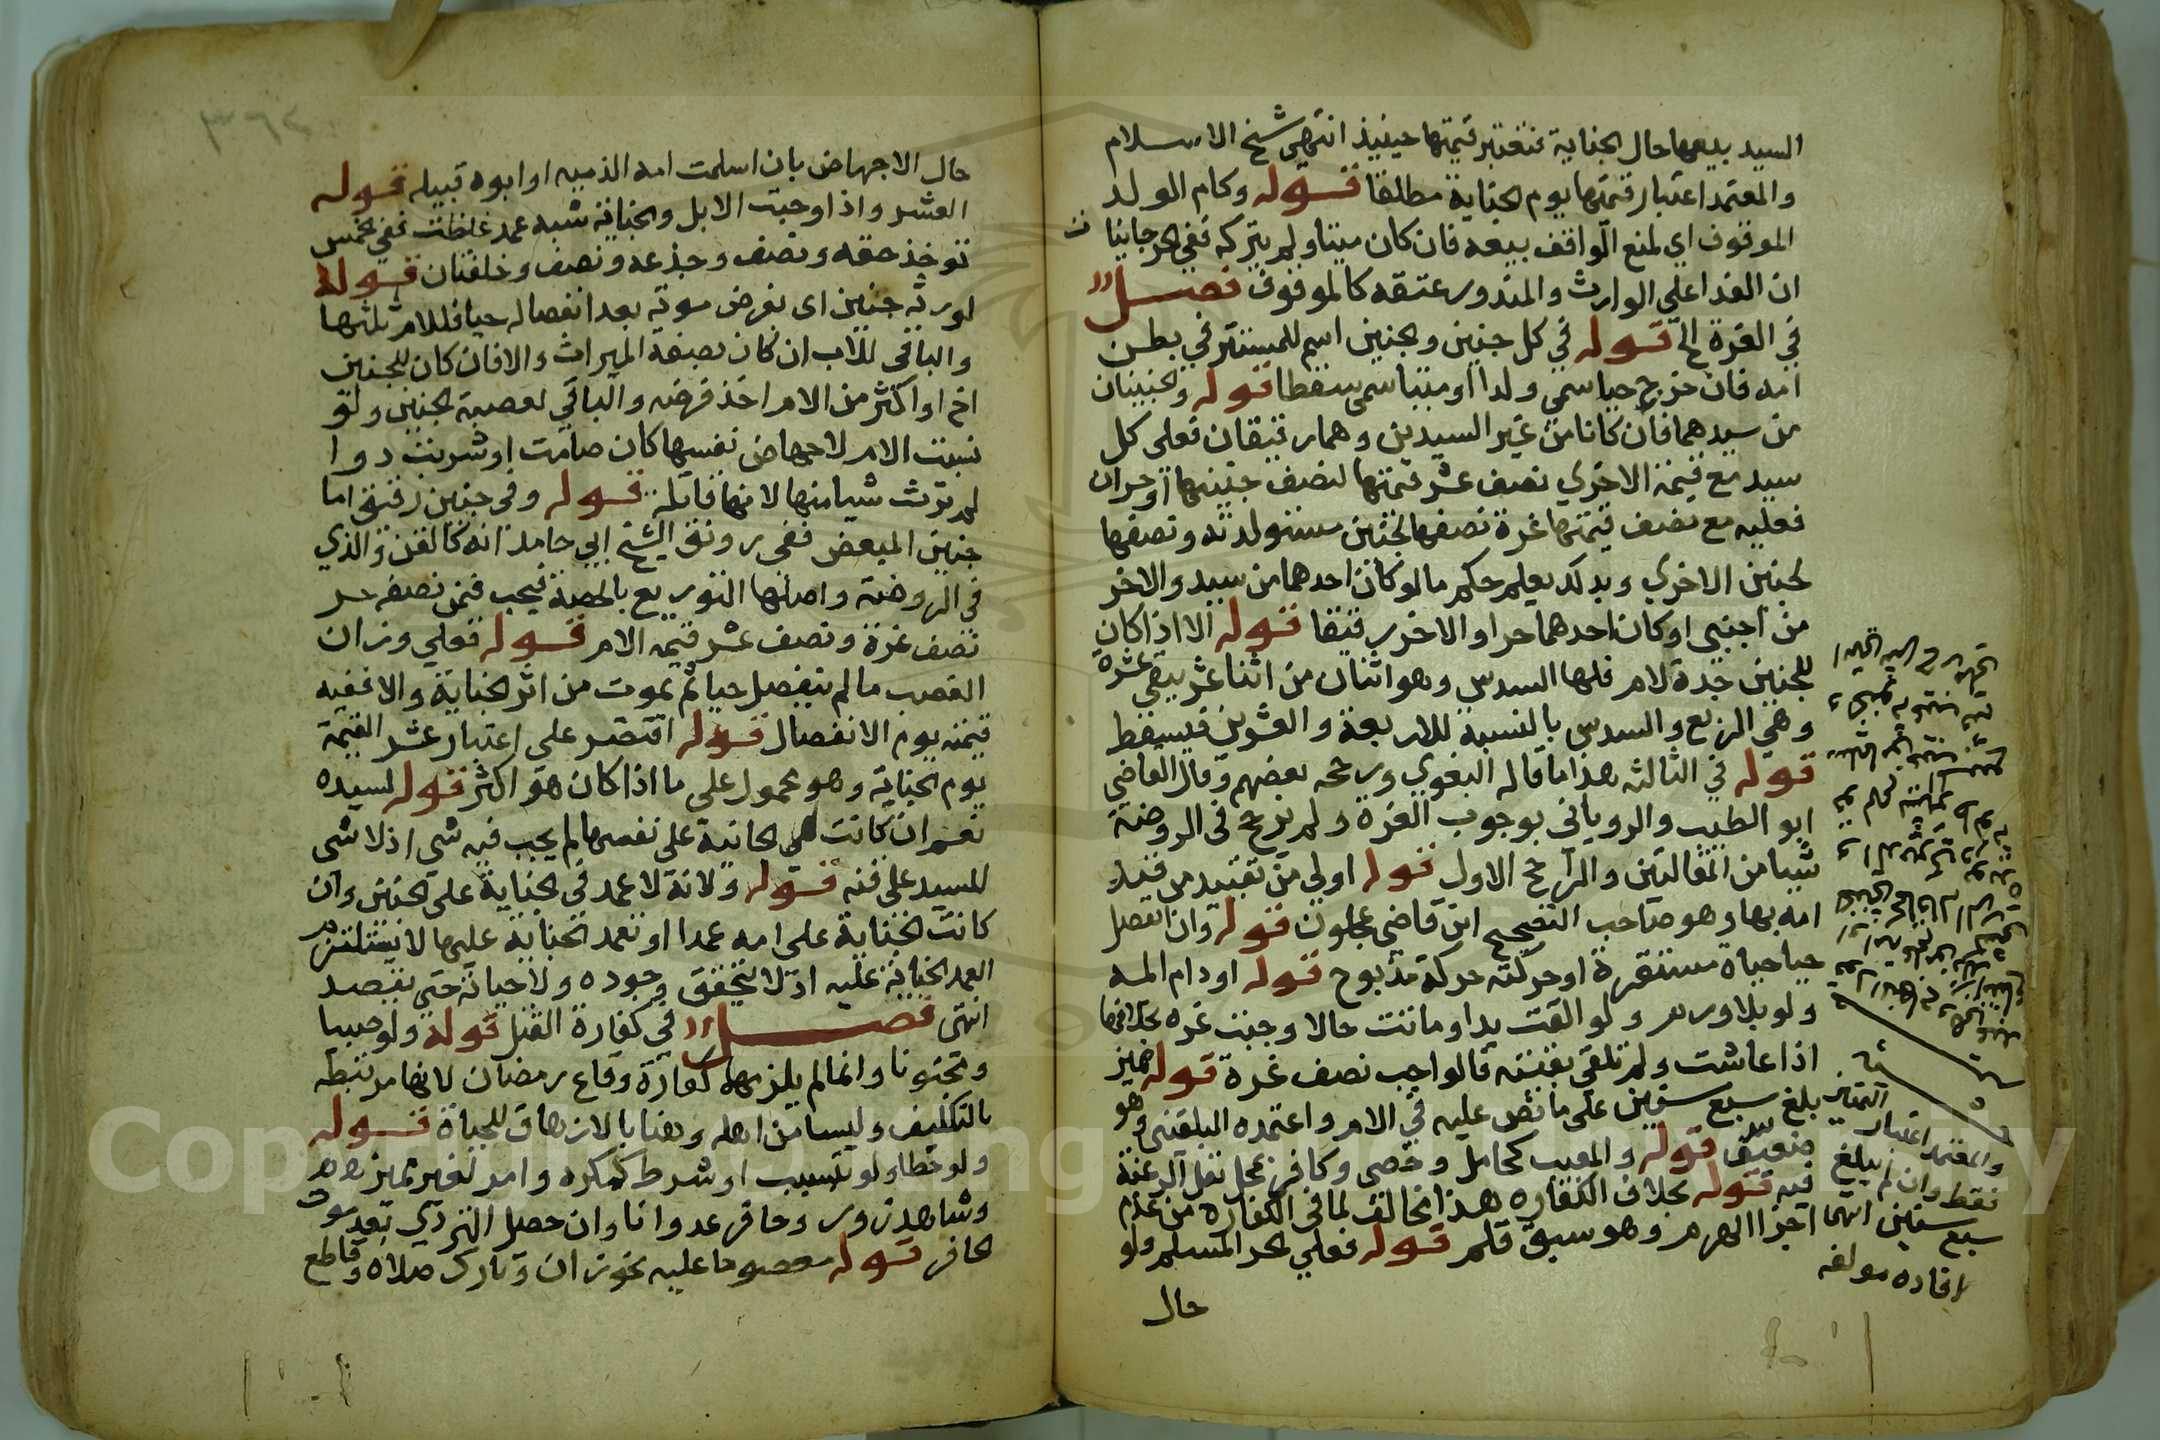 السيد بيعها حال الجناية فتعتبر قيمتها حينيذ انتهى شيخ الاسلام
والمعتمد اعتبار قيمتها يوم الجناية مطلقا قوله وكام الولد
الموقوف اي لمنع الواقف بيعه فان كان ميتا ولم يتركه ففي الجرجانيات
ان الفدا على الوارث والمنذور عتقه كالموقوف فصل
في الغرة الخ قوله في كل جنين والجنين اسم للمستتر في بطن
امه فان خرج حيا سمي ولدا او ميتا سمى سقطا قوله والجنينان
من سيدهما فان كانا من غير السيدين وهما رقيقان فعلى كل
سيد مع قيمة الاخرى نصف عشر قيمتها لنصف جنينها او حران
فعليه مع نصف قيمتها غرة نصفها لجنين مستولدته ونصفها
لجنين الاخرى وبذلك يعلم حكم ما لو كان احدهما من سيد والاخر
من اجنبي او كان احدهما حرا والاخر رقيقا قوله الا اذا كان
للجنين جدة لام فلها السدس وهو اثنان من اثنا عشر يبقى عشرة
وهي الربع والسدس بالنسبة للاربعة والعشرين فيسقط
قوله في الثالثه هذا ما قاله البغوي ورجحه بعضهم وقال القاضي
ابو الطيب والروياني بوجوب الغرة ولم يرجح في الروضة
شيا من المقالتين والراجح الاول قوله اولى من تقييد من قيد
امه بها وهو صاحب التصحيح ابن قاضي عجلون قوله وان انفصل
حيا حياة مستقرة او حركته حركة مذبوح قوله او دام المه
ولو بلا ورم ولو القت يدا وماتت حالا وجبت غره بخلافها
اذا عاشت ولم تلقي بقيته فالواجب نصف غرة قوله مميز
بلغ سبع سنين على ما نص عليه في الام واعتمده البلقيني وهو
ضعيف قوله والمعيب كحامل وخصى وكافر بمحل تقل الرغبة
فيه قوله بخلاف الكفاره هذا مخالف لما في الكفارة من عدم
اجزا الهرم وهو سبق قلم قوله فعلي الحر المسلم ولو
حال
والمعتمد اعتبار التمييز
فقط وان لم يبلغ
سبع سنين انتهى
افاده مولفه
٣٦٢
حال الاجهاض بان اسلمت امه الذميه او ابوه قبيله قوله
العشر واذا وجبت الابل والجناية شبه عمد غلظت ففي الخمس
توخذ حقه ونصف وجذعه ونصف وخلفتان قوله
لورثة جنين اي بفرض موته بعد انفصاله حيا فللام ثلثها
والباقي للاب ان كان بصفة الميراث والا فان كان للجنين
اخ او اكثر من الام اخذ فرضه والباقي لعصبة الجنين ولو
نسبت الام لاجهاض نفسها كان صامت او شربت دوا
لم ترث شيا منها لانها قاتله قوله وفي جنين رقيق اما
جنين المبعض ففي رونق الشيخ ابي حامد انه كالقن والذي
في الروضة واصلها التوزيع بالحصة فيجب فمن نصفه حر
نصف غرة ونصف عشر قيمة الام قوله فعلى وزان
الغصب ما لم ينفصل حيا ثم يموت من اثر الجناية والا ففيه
قيمته يوم الانفصال قوله اقتصر على اعتبار عشر القيمة
يوم الجناية وهو محمول على ما اذا كان هو اكثر قوله لسيده
نعم ان كانت هي الجانية على نفسها لم يجب فيه شي اذ لا شى
للسيد على قنه قوله ولانه لا عمد في الجناية على الجنين وان
كانت الجناية على امه عمدا او تعمد الجناية عليها لا يستلزم
العمد الجناية عليه اذ لا يتحقق وجوده ولا حياته حتى يقصد
انتهى فصل في كفارة القتل قوله ولو صبيا
ومجنونا وانما لم يلزمهما كفارة وقاع رمضان لانها مرتبطه
بالتكليف وليسا من اهله وهنا بالازهاق للحياة قوله
ولو خطا ولو تسبب او شرط كمكره وامر لغير مميز
وشاهد زور وحافر عدوانا وان حصل التردي بعد موت
الحافر قوله معصوما عليه نحو زان وتارك صلاه وقاطع